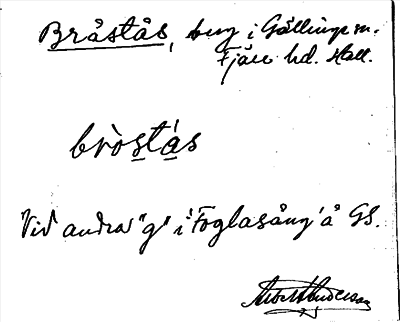 Bråstås, berg i Gällinge sn.
Fjäre hd. Hall.
bròstás
Vid andra "g" i "Foglasång" å GS.
Albert Anderson